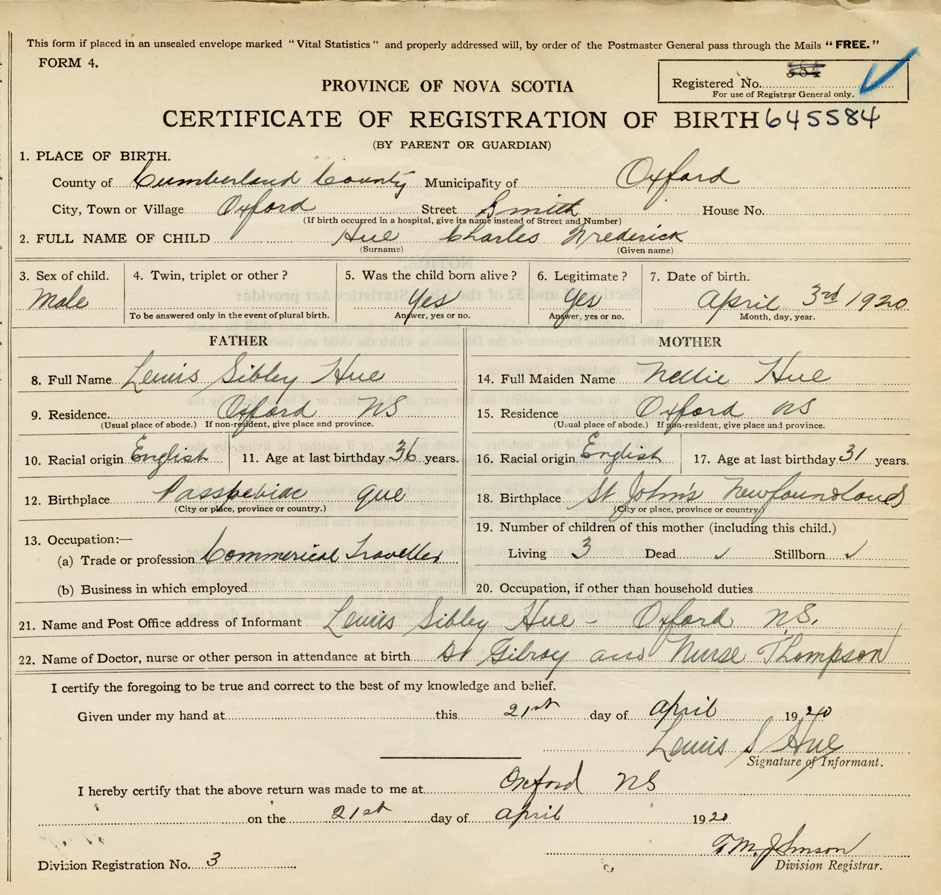 This form if placed in an unsealed envelope marked "Vital Statistics" and properly addressed will, by order of the Postmaster General pass through the Mails "FREE."
FORM 4.
PROVINCE OF NOVA SCOTIA
Registered No.
For use of Registrar General only.
CERTIFICATE OF REGISTRATION OF BIRTH 645584
(BY PARENT OR GUARDIAN)
1. PLACE OF BIRTH.
County of Cumberland County Municipality of Oxford
City, Town or Village Oxford Street Smith House No.
(If birth occurred in a hospital, give its name instead of Street and Number)
2. FULL NAME OF CHILD Hue Charles Frederick
(Surname) (Given name)
3. Sex of child. 4. Twin, triplet or other? 5. Was the child born alive? 6. Legitimate? 7. Date of birth.
Male Yes Yes April 3rd 1920
To be answered only in the event of plural birth. Answer, yes or no. Answer, yes or no. Month, day, year.
FATHER MOTHER
8. Full Name Lewis Sibley Hue 14. Full Maiden Name Nellie Hue
9. Residence Oxford NS 15. Residence Oxford NS
(Usual place of abode.) If non-resident, give place and province. (Usual place of abode.) If non-resident, give place and province.
10. Racial origin English 11. Age at last birthday 36 years. 16. Racial origin English 17. Age at last birthday 31 years.
12. Birthplace que 18. Birthplace St John's Newfoundland
(City or place, province or country.) (City or place, province or country.)
13. Occupation:— 19. Number of children of this mother (including this child.)
(a) Trade or profession Commerical Traveller Living 3 Dead ✓ Stillborn ✓
(b) Business in which employed 20. Occupation, if other than household duties
21. Name and Post Office address of Informant Lewis Sibley Hue - Oxford NS.
22. Name of Doctor, nurse or other person in attendance at birth Dr Gilroy and Nurse Thompson
I certify the foregoing to be true and correct to the best of my knowledge and belief.
Given under my hand at this 21st day of April 1920
Lewis S Hue
Signature of Informant.
I hereby certify that the above return was made to me at Oxford NS
on the 21st day of April 1920
Division Registration No. 3 Division Registrar.